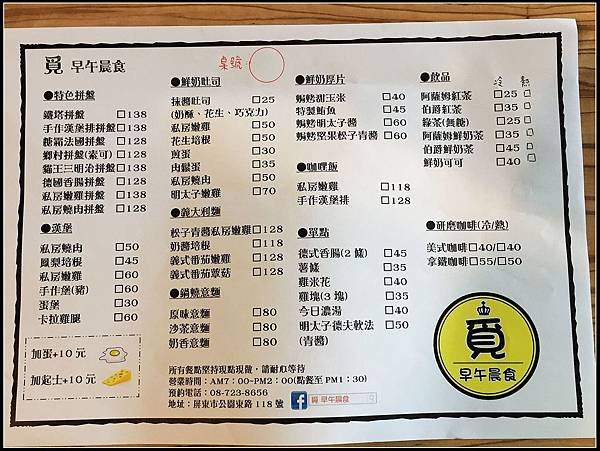 覓 早午晨食
桌號:
●特色拼盤
鐵塔拼盤 □138
手作漢堡排拼盤□138
糖霜法國拼盤 □128
鄉村拼盤(素可) □128
貓王三明治拼盤□138
德國香腸拼盤 □128
私房嫩雞拼盤 □138
私房燒肉拼盤 □128
●漢堡
私房燒肉 □50
鳳梨培根 □45
私房嫩雞 □60
手作堡(豬) □60
蛋堡 □30
卡拉雞腿 □60
加蛋+10元
加起士+10元
●鮮奶吐司
抹醬吐司 □25
(奶酥、花生、巧克力)
私房嫩雞 □50
花生培根 □50
煎蛋 □30
肉鬆蛋 □35
私房燒肉 □50
明太子嫩雞 □70
●義大利麵
松子青醬私房嫩雞□128
奶醬培根 □118
義式番茄嫩雞 □128
義式番茄蕈菇 □128
●鍋燒意麵
原味意麵 □80
沙茶意麵 □80
奶香意麵 □80
●鮮奶厚片
焗烤甜玉米 □40
特製鮪魚 □45
焗烤明太子醬 □60
焗烤堅果松子青醬 □60
●咖哩飯
私房嫩雞 □118
手作漢堡排 □128
●單點
德式香腸(2條) □45
薯條 □35
雞米花 □40
雞塊(3塊) □35
今日濃湯 □40
明太子德夫軟法 □50
(青醬)
●飲品
冷 熱
阿薩姆紅茶 □25 □
伯爵紅茶 □35 □
綠茶(無糖) □25 □
阿薩姆鮮奶茶 □35 □
伯爵鮮奶茶 □45 □
鮮奶可可 □40 □
●研磨咖啡(冷/熱)
美式咖啡□40/□40
拿鐵咖啡□55/□50
覓
早午晨食
所有餐點堅持現點現做,請耐心等待
營業時間:AM7:00~PM2:00(點餐至PM1:30)
預約電話:08-723-8656
地址:屏東市公園東路118號
f 覓 早午晨食